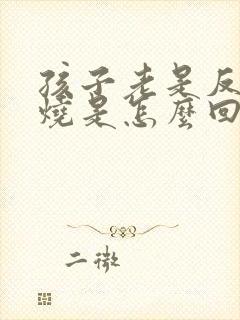 孩子老是反
燒是怎麼回
二微